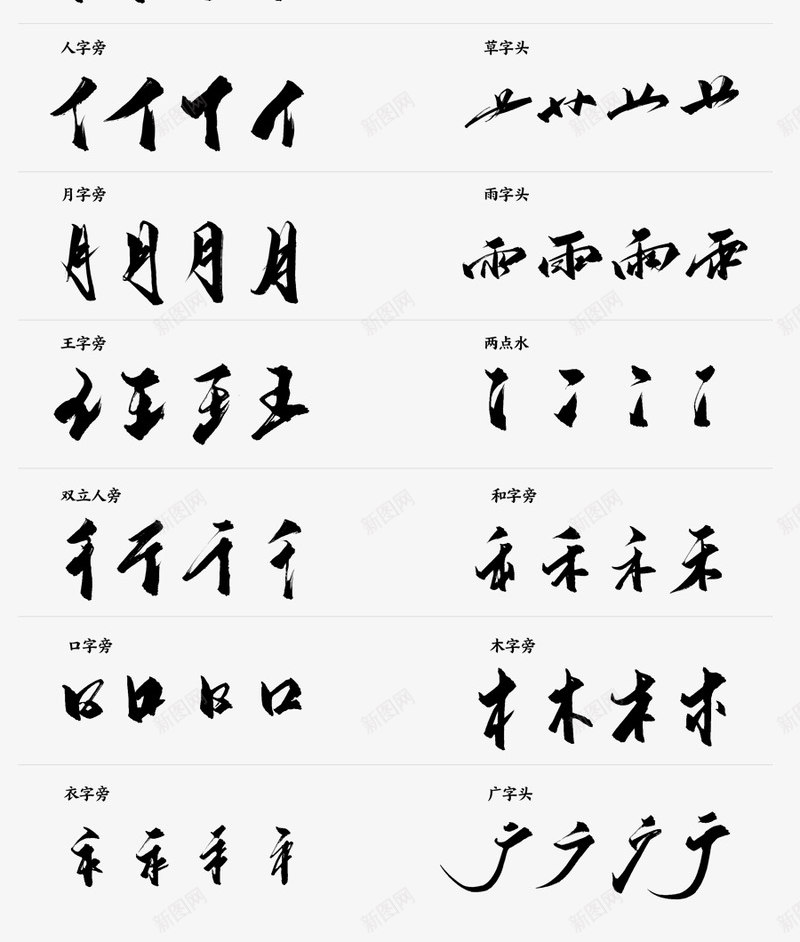 人字旁 草字头
亻亻亻亻 艹艹艹艹
月字旁 雨字头
月月月月 雨雨雨雨
王字旁 两点水
王王王王 冫冫冫冫
双立人旁 和字旁
彳彳彳彳 禾禾禾禾
口字旁 木字旁
口口口口 木木木木
衣字旁 广字头
衤衤衤衤 广广广广
新图网